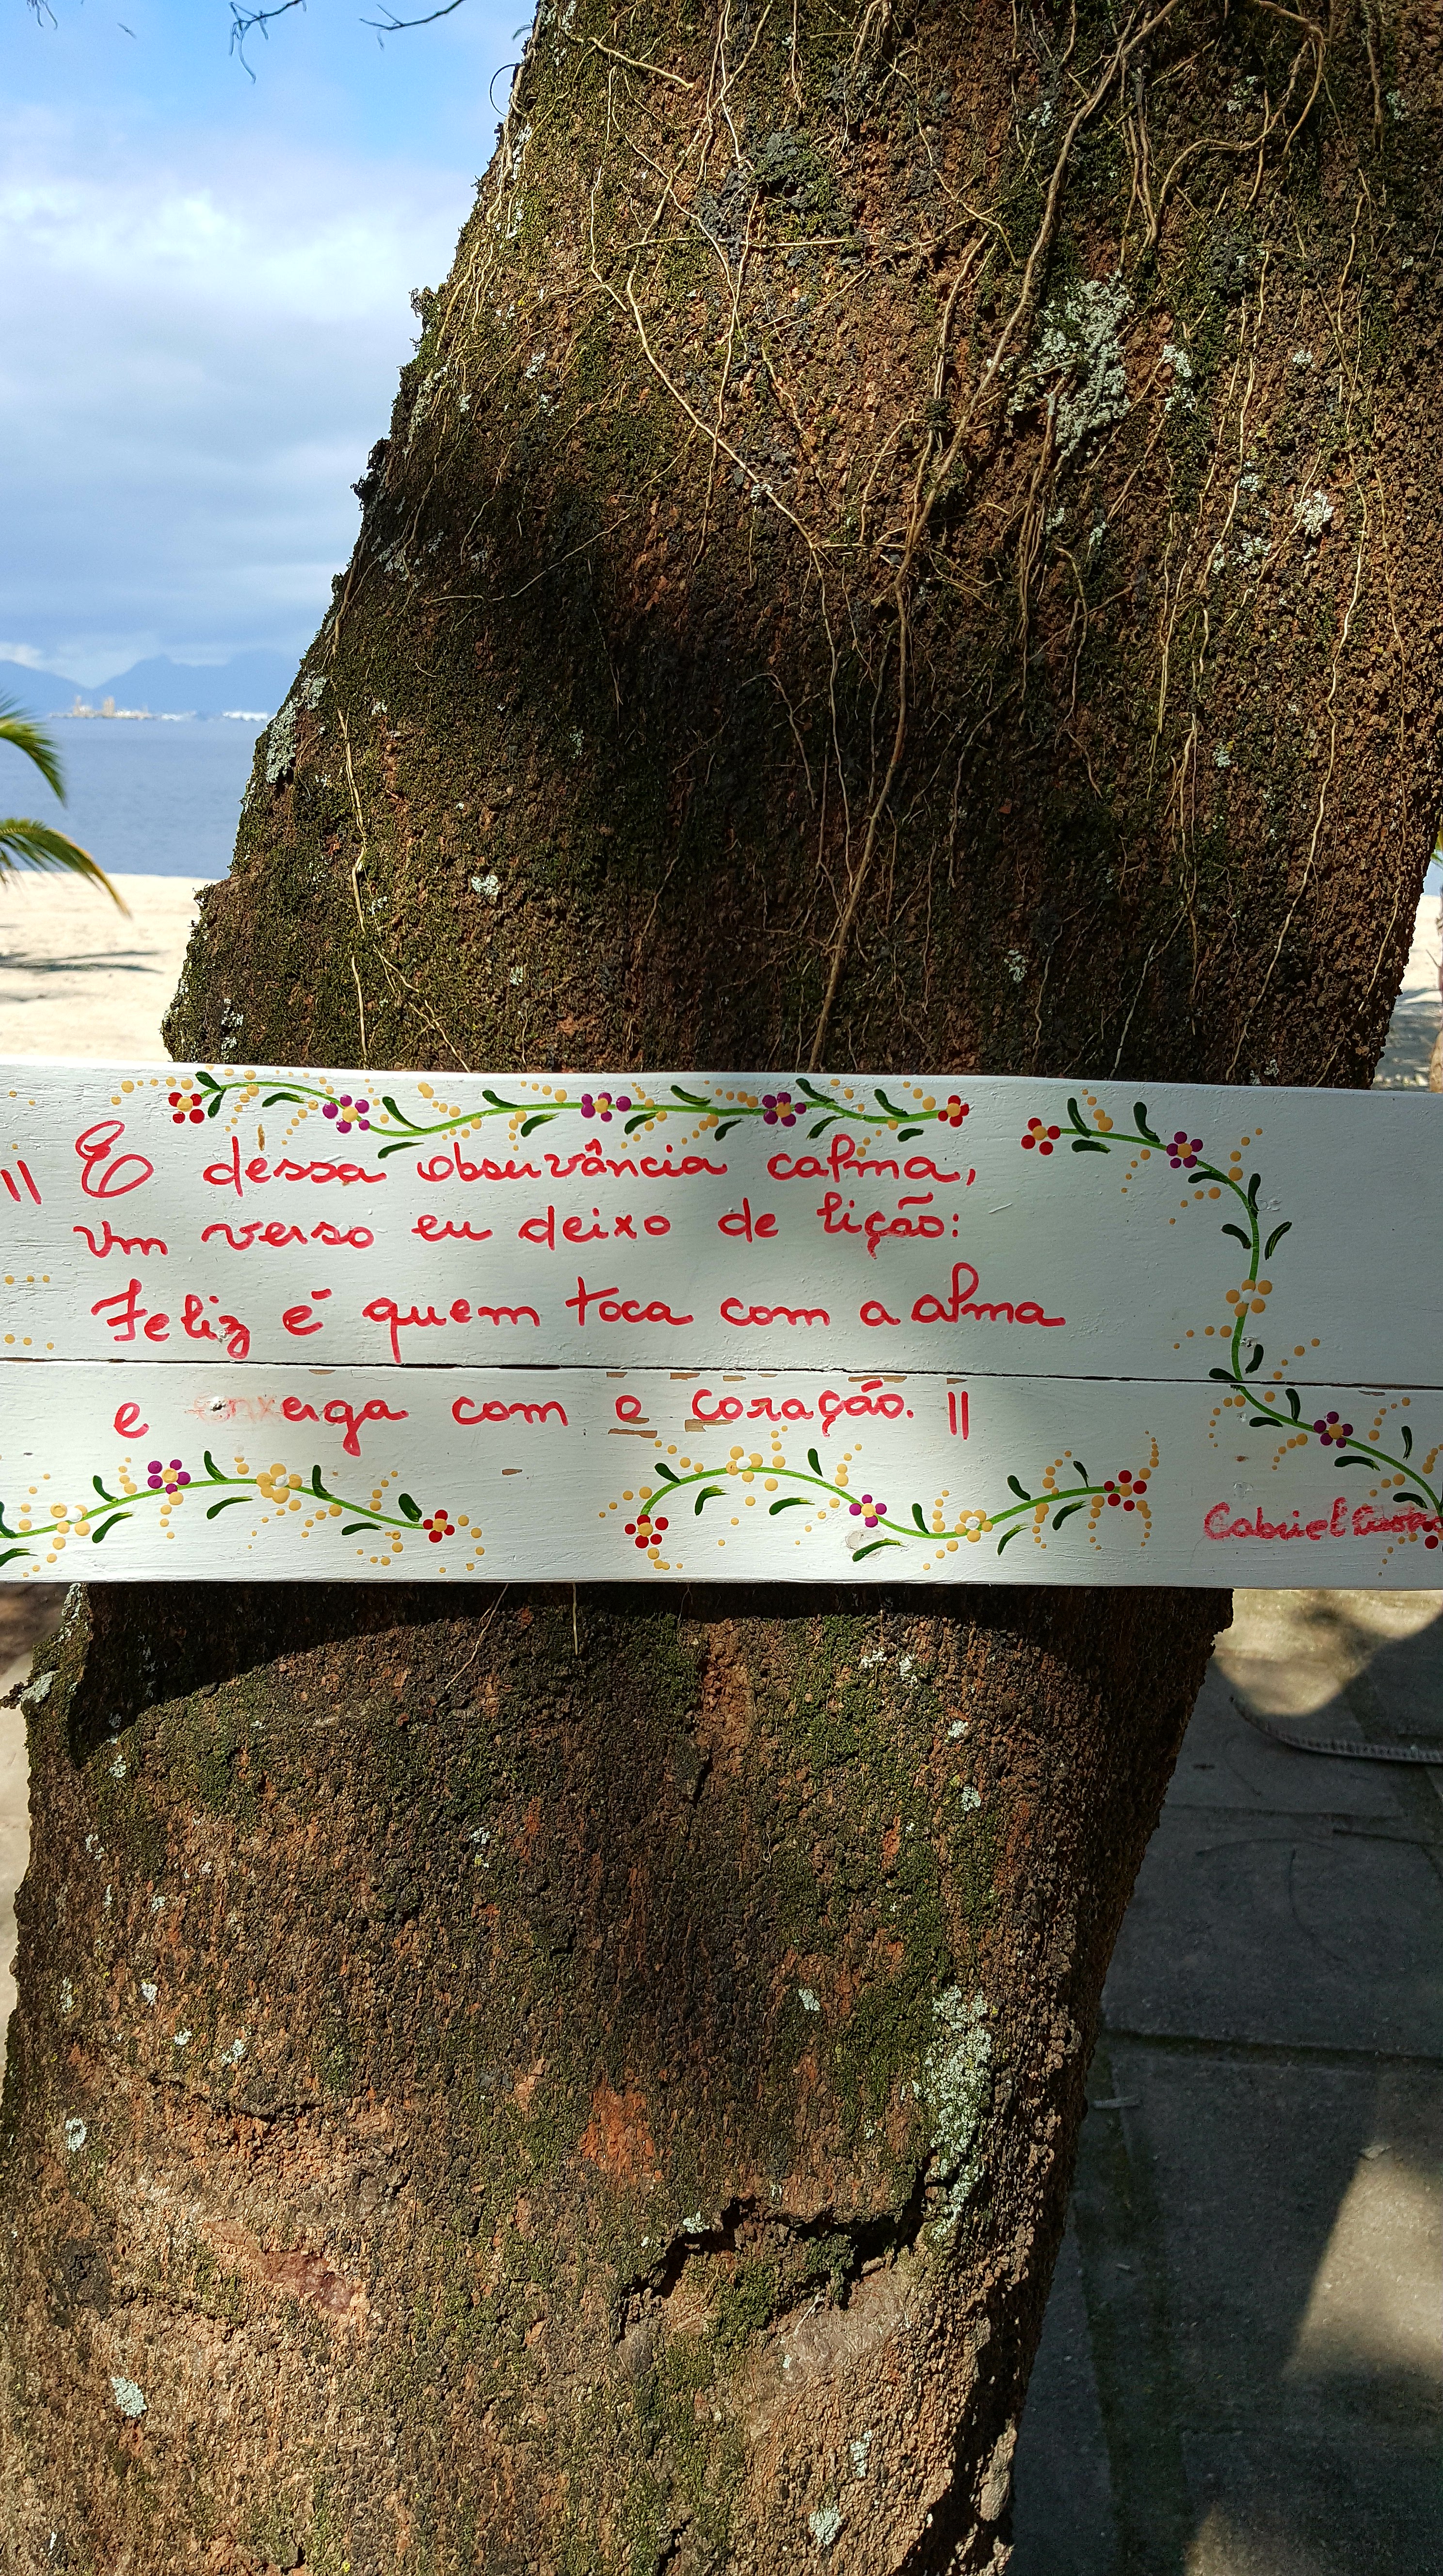 " E dessa observância calma,
um verso eu deixo de lição:
Feliz é quem toca com a alma
e enxerga com o coração. "
Gabriel